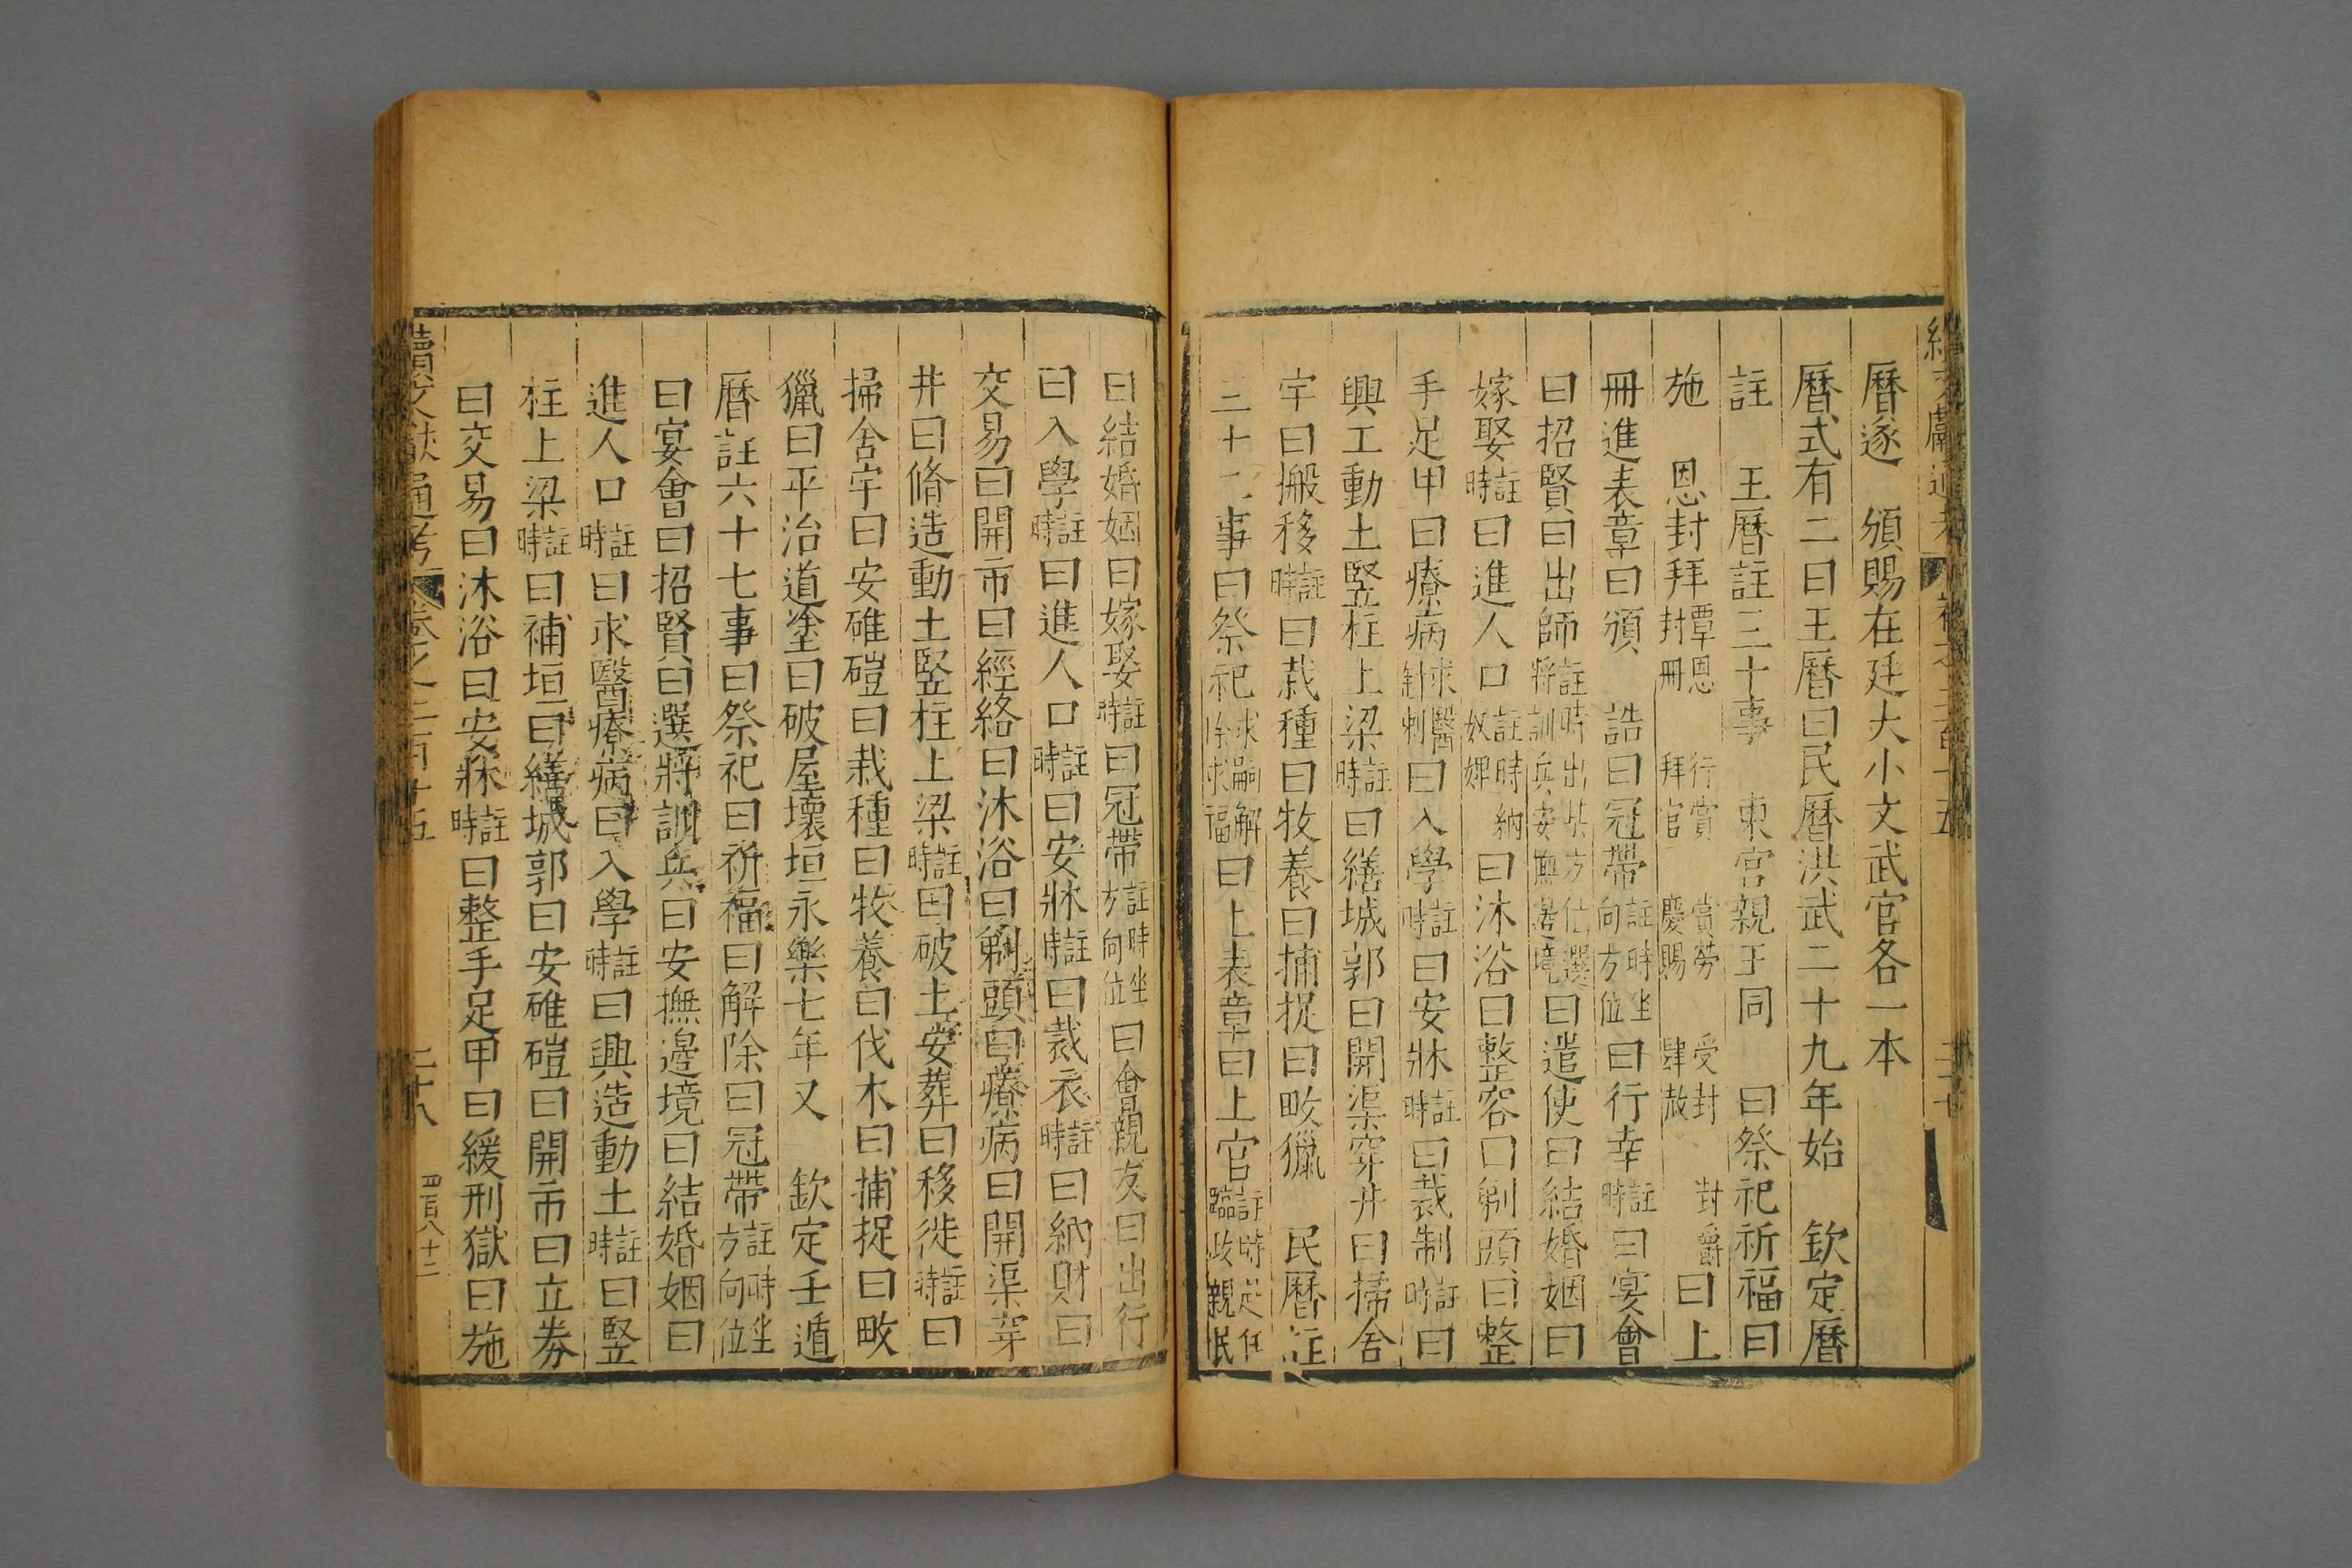 曆遂 頒賜在廷大小文武官各一本
曆式有二曰王曆曰民曆洪武二十九年始 欽定曆
註 王曆註三十事 東宮親王同 曰祭祀祈福曰
施 恩封拜覃恩封冊 行賞拜官 賞勞慶賜 受封肆赦 封爵曰上
冊進表章曰頒 誥曰冠帶註時坐向方位曰行幸註時曰宴會
曰招賢曰出師註時出兵方位選將訓兵安撫邊境曰遣使曰結婚姻曰
嫁娶註時曰進人口註時納奴婢曰沐浴曰整容曰剃頭曰整
手足甲曰療病求醫針刺曰入學註時曰安牀註時曰裁制註時曰
興工動土竪柱上梁註時曰繕城郭曰開渠穿井曰掃舍
宇曰搬移註時曰栽種曰牧養曰捕捉曰畋獵 民曆註
三十二事曰祭祀求嗣解除求福曰上表章曰上官註時赴任臨政親民
曰結婚姻曰嫁娶註時曰冠帶註時坐方向位曰會親友曰出行
曰入學註時曰進人口註時曰安牀註時曰裁衣註時曰納財曰
交易曰開市曰經絡曰沐浴曰剃頭曰療病曰開渠穿
井曰脩造動土竪柱上梁註時曰破土安葬曰移徙註時曰
掃舍宇曰安碓磑曰栽種曰牧養曰伐木曰捕捉曰畋
獵曰平治道塗曰破屋壞垣永樂七年又 欽定壬遁
曆註六十七事曰祭祀曰祈福曰解除曰冠帶註時坐方向位
曰宴會曰招賢曰選將訓兵曰安撫邊境曰結婚姻曰
進人口註時曰求醫療病曰入學註時曰興造動土註時曰竪
柱上梁註時曰補垣曰繕城郭曰安碓磑曰開市曰立券
曰交易曰沐浴曰安牀註時曰整手足甲曰緩刑獄曰施
續文獻通考 卷之二百十五 二十八 四百八十二